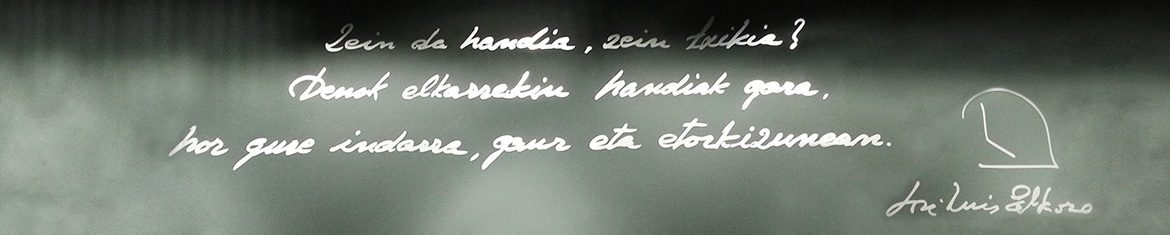 Zein da handia, zein txikia?
Denok elkarrekin handiak gara,
hor gure indarra, gaur eta etorkizunean.
Joxe Luis Elkoro